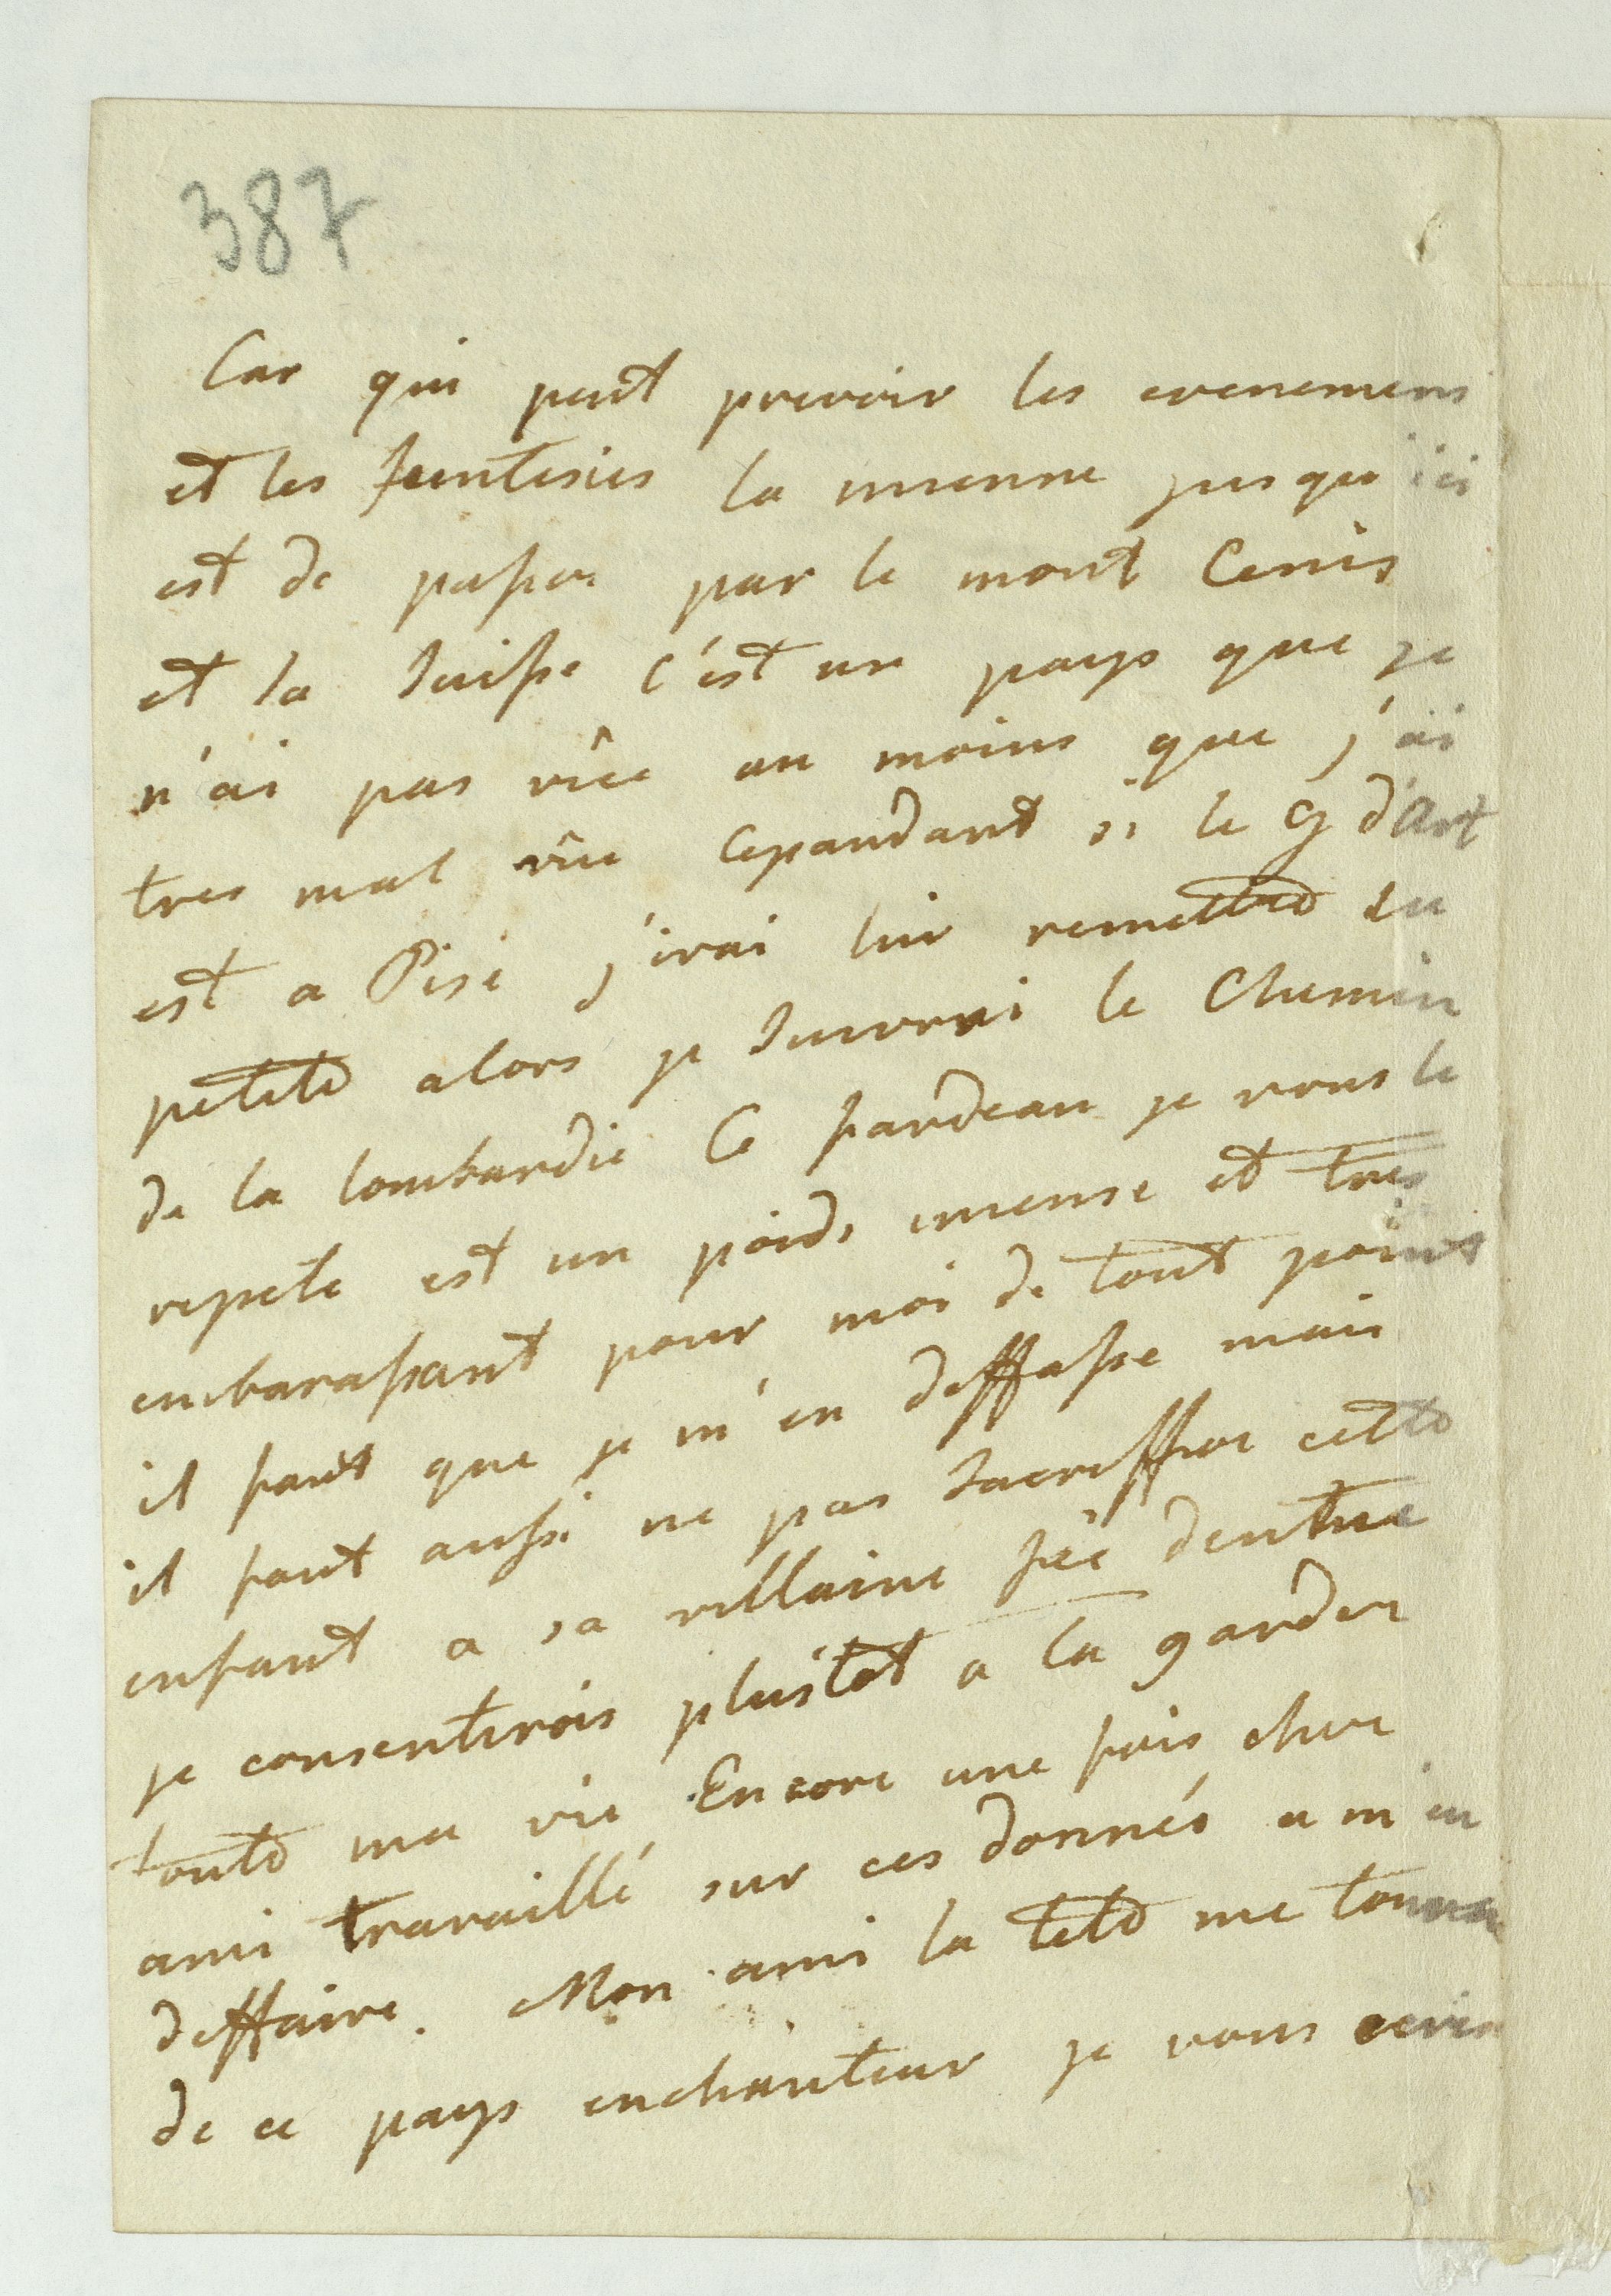 387
Car qui peut prevoir les evenemens
et les fantesies la mienne jusqu'ici
est de passer par le mont Cenis
et la Suisse c'est un pays que je
n'ai pas vûe au moins que j'ai
tres mal vûe cepandant si le g d'Art
est a Pise j'irai lui remettre sa
petite alors je suivrai le Chemin
de la lombardie Ce fardeau je vous le
repete est un poids imense et tres
embarassant pour moi de tout point
il faut que je m'en deffasse mais
il faut aussi ne pas sacreffier cette
enfant a sa villaine fée dentue
je consentirois plustot a la garder
toute ma vie Encore une fois cher
ami travaillé sur ces donnés a m'en
deffaire. Mon ami la tete me tourne
de ce pays enchanteur je vous ecris